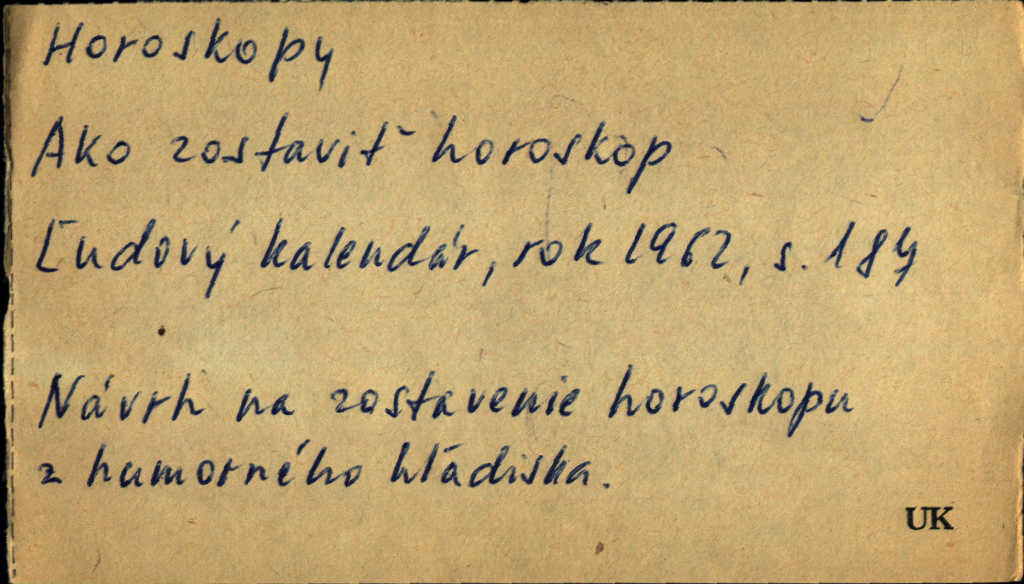 Horoskopy
Ako zostaviť horoskop
Ľudový kalendár, rok 1962, s. 184
Návrh na zostavenie horoskopu
z humorného hľadiska.
UK